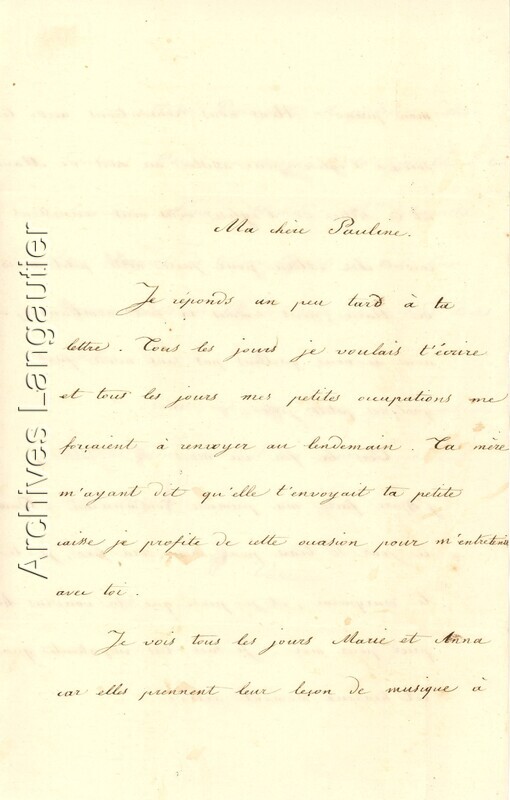 Ma chère Pauline.
Je réponds un peu tard à ta
lettre. Tous les jours je voulais t'écrire
et tous les jours mes petites occupations me
forçaient à renvoyer au lendemain. Ta mère
m'ayant dit qu'elle t'envoyait ta petite
caisse je profite de cette ocasion pour m'entretenir
avec toi.
Je vois tous les jours Marie et Anna
car elles prennent leur leçon de musique à
Archives Langautier